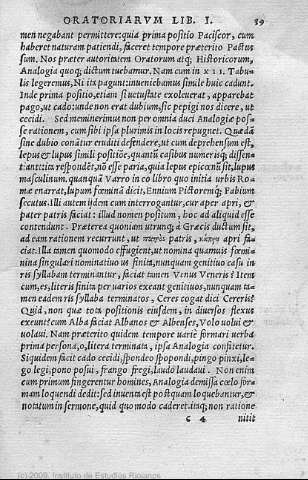 ORATORIARVM LIB. I. 39
men negabant permitter: quia prima positio Paciscor, cum
haberet naturam patiendi, faceret tempore præterito Pactus
sum. Nos præter autoritatem Oratorum atq; Historicorum,
Analogia quoq; dictum tuebamur. Nam cum in XII. Tabu-
lis legeremus, Ni ita pagunt: inueniebamus simile huic cadunt.
Inde prima positio, etiam si uetustate exoleuerat, apparebat
pago, ut cado: unde non erat dubium, sic pepigi nos dicere, ut
cecidi. Sed meminerimus non per omnia duci Analogiæ pos-
se rationem, cum sibi ipsa plurimis in locis repugnet. Quædã
sine dubio conãtur eruditi defendere, ut cum deprehensum est,
lepus & lupus simili positióe, quantũ casibus numerisq; dissen-
t: ant: ita respondẽt, nõ esse paria, quia lepus epicœnũ sit, lupus
masculinum. quanquã Varro in eo libro quo initia urbis Ro-
mæ enarrat, lupum fœminã dicit, Ennium Pictoremq; Fabium
secutus. Illi autem ijdem cum interrogantur, cur aper apri, &
pater patris faciat: illud nomen positum, hoc ad aliquid esse
contendunt. Præterea quoniam utrunq; à Græcis ductum sit,
ad eam rationem recurrunt, ut πατρὸς patris, κάπρου apri fa-
ciat. Illa tamen quomodo effugient, ut nomina quamuis fœmi-
nina singulari nominatiuo us finita, nunquam genitiuo casu in
ris syllabam terminantur, faciat tamen Venus Veneris? Item
cum, es, literis finita per uarios exeant genitiuos, nunquam ta-
men eadem ris syllaba terminatos, Ceres cogat dici Cereris?
Quid, quòn quæ tota positionis eiusdem, in diuersos flexus
exeunt? cum Alba faciat Albanos & Albenses, Volo uolui &
uolaui. Nam præterito quidem tempore uariè formari uerba
prima persona, o, litera terminata, ipsa Analogia confitetur.
Siquidem facit cado cecidi, spondeo spopondi, pingo pinxi, le-
go legi, pono posui, frango fregi, laudo laudaui. Non enim
cum primum fingerentur homines, Analogia demissa cœlo for-
mam loquendi dedit: sed inuenta est postquam loquebantur, &
notatum in sermone, quid quo modo caderet. itaq; non ratione
c 4 nitit
(c) 2009, Instituto de Estudios Riojanos